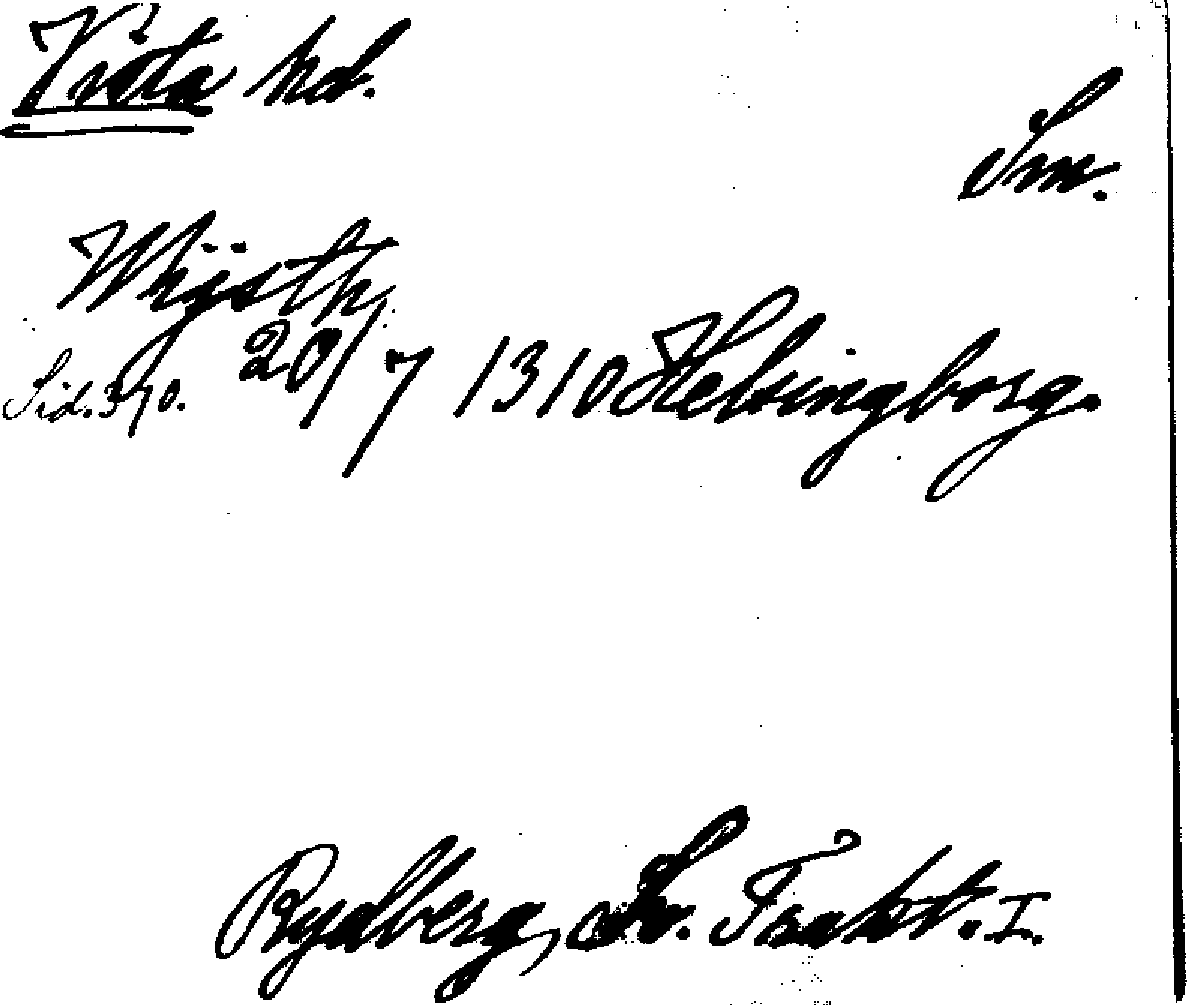 Vista hd.
Sm.
Whÿsth.
Sid. 370. 20/7 1310 Helsingborg.
Rydberg, Sv. Trakt. I.